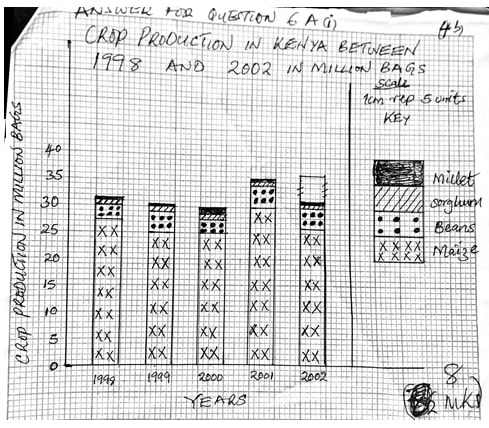 ANSWER FOR QUESTION 6 A (i)
(4b)
CROP PRODUCTION IN KENYA BETWEEN
1998 AND 2002 IN MILLION BAGS
scale
1cm rep 5 units
KEY
Millet
sorghum
Beans
Maize
CROP PRODUCTION IN MILLION BAGS
40
35
30
25
20
15
10
5
0
1998 1999 2000 2001 2002
YEARS
8
MKS